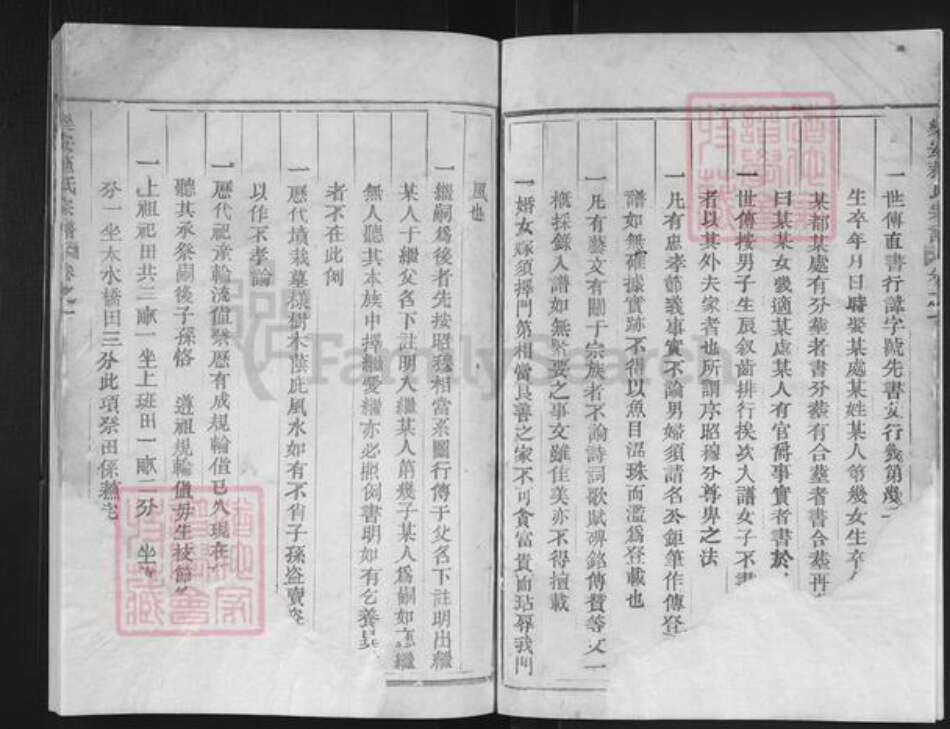 一世傳直書行諱字號先書父行幾第幾
生卒年月日時娶某處某姓某人第幾女生卒
某都某處有分葬者書分葬有合葬者書合葬再
曰某某女幾適某處某人有官爵事實者書於
一世傳按男子生辰叙齒排行挨次入譜女子不書
者以其外夫家者也所謂序昭穆分尊卑之法
一凡有忠孝節義事實不論男婦須請名公鉅筆作傳登
譜如無確據實跡不得以魚目混珠而濫爲登載也
一凡有藝文有關于宗族者不論詩詞歌賦碑銘傳贊等文一
概採錄入譜如無緊要之事文雖佳美亦不得擅載
一婚女嫁須擇門第相當良善之家不可貪富貴而玷辱我門
風也
一繼嗣爲後者先按昭穆相當系圖行傳于父名下註明出繼
某人于繼父名下註明入繼某人第幾子某人爲嗣如
繼
無人聽其本族中擇繼愛繼亦必照例書明如有乞養
者不在此例
一歷代墳栽墓樣樹木蔭庇風水如有不肖子孫盜賣
以作不孝論
一歷代祀產輪流值祭歷有成規輪值已久現在
聽其承祭嗣後子孫恪 遵祖規輪值毋生枝節
一上祖祀田共二畝一坐上班田一畝二分 坐
分一坐木水橋田三分此項祭田係
樂安孫氏宗譜 卷之一
FamilySearch